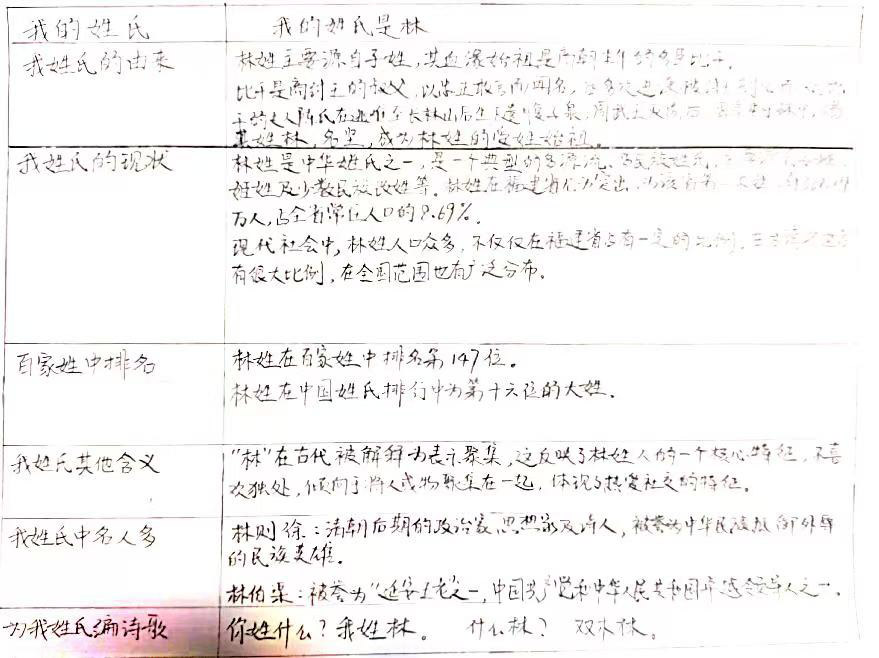 我的姓氏
我的姓氏是林
我姓氏的由来
林姓主要源自子姓，其血缘始祖是商朝末年的名臣比干。
比干是商纣王的叔父，以忠正敢言而闻名，
夫人陈氏在逃难至长林山后生下遗腹子泉，周武王
其姓林，名坚，成为林姓的受姓始祖。
我姓氏的现状
林姓是中华姓氏之一，是一个典型的多源流、多民族姓氏，
姬姓及少数民族改姓等。林姓在福建省尤为突出，为该省第一大姓，
万人，占全省常住人口的9.69%。
现代社会中，林姓人口众多，不仅仅在福建省占有一定的比例，
有很大比例，在全国范围也有广泛分布。
百家姓中排名
林姓在百家姓中排名第147位。
林姓在中国姓氏排行中为第十六位的大姓。
我姓氏其他含义
“林”在古代被解释为表示聚集，这反映了林姓人的一个核心特征，不喜
欢独处，倾向于将人或物聚集在一起，体现了热爱社交的特征。
我姓氏中名人多
林则徐：清朝后期的政治家思想家及诗人，被誉为中华民族抵御外辱
的民族英雄。
林伯渠：被誉为“延安五老”之一，中国共产党和中华人民共和国卓越领导人之一。
为我姓氏编诗歌
你姓什么？我姓林。 什么林？ 双木林。